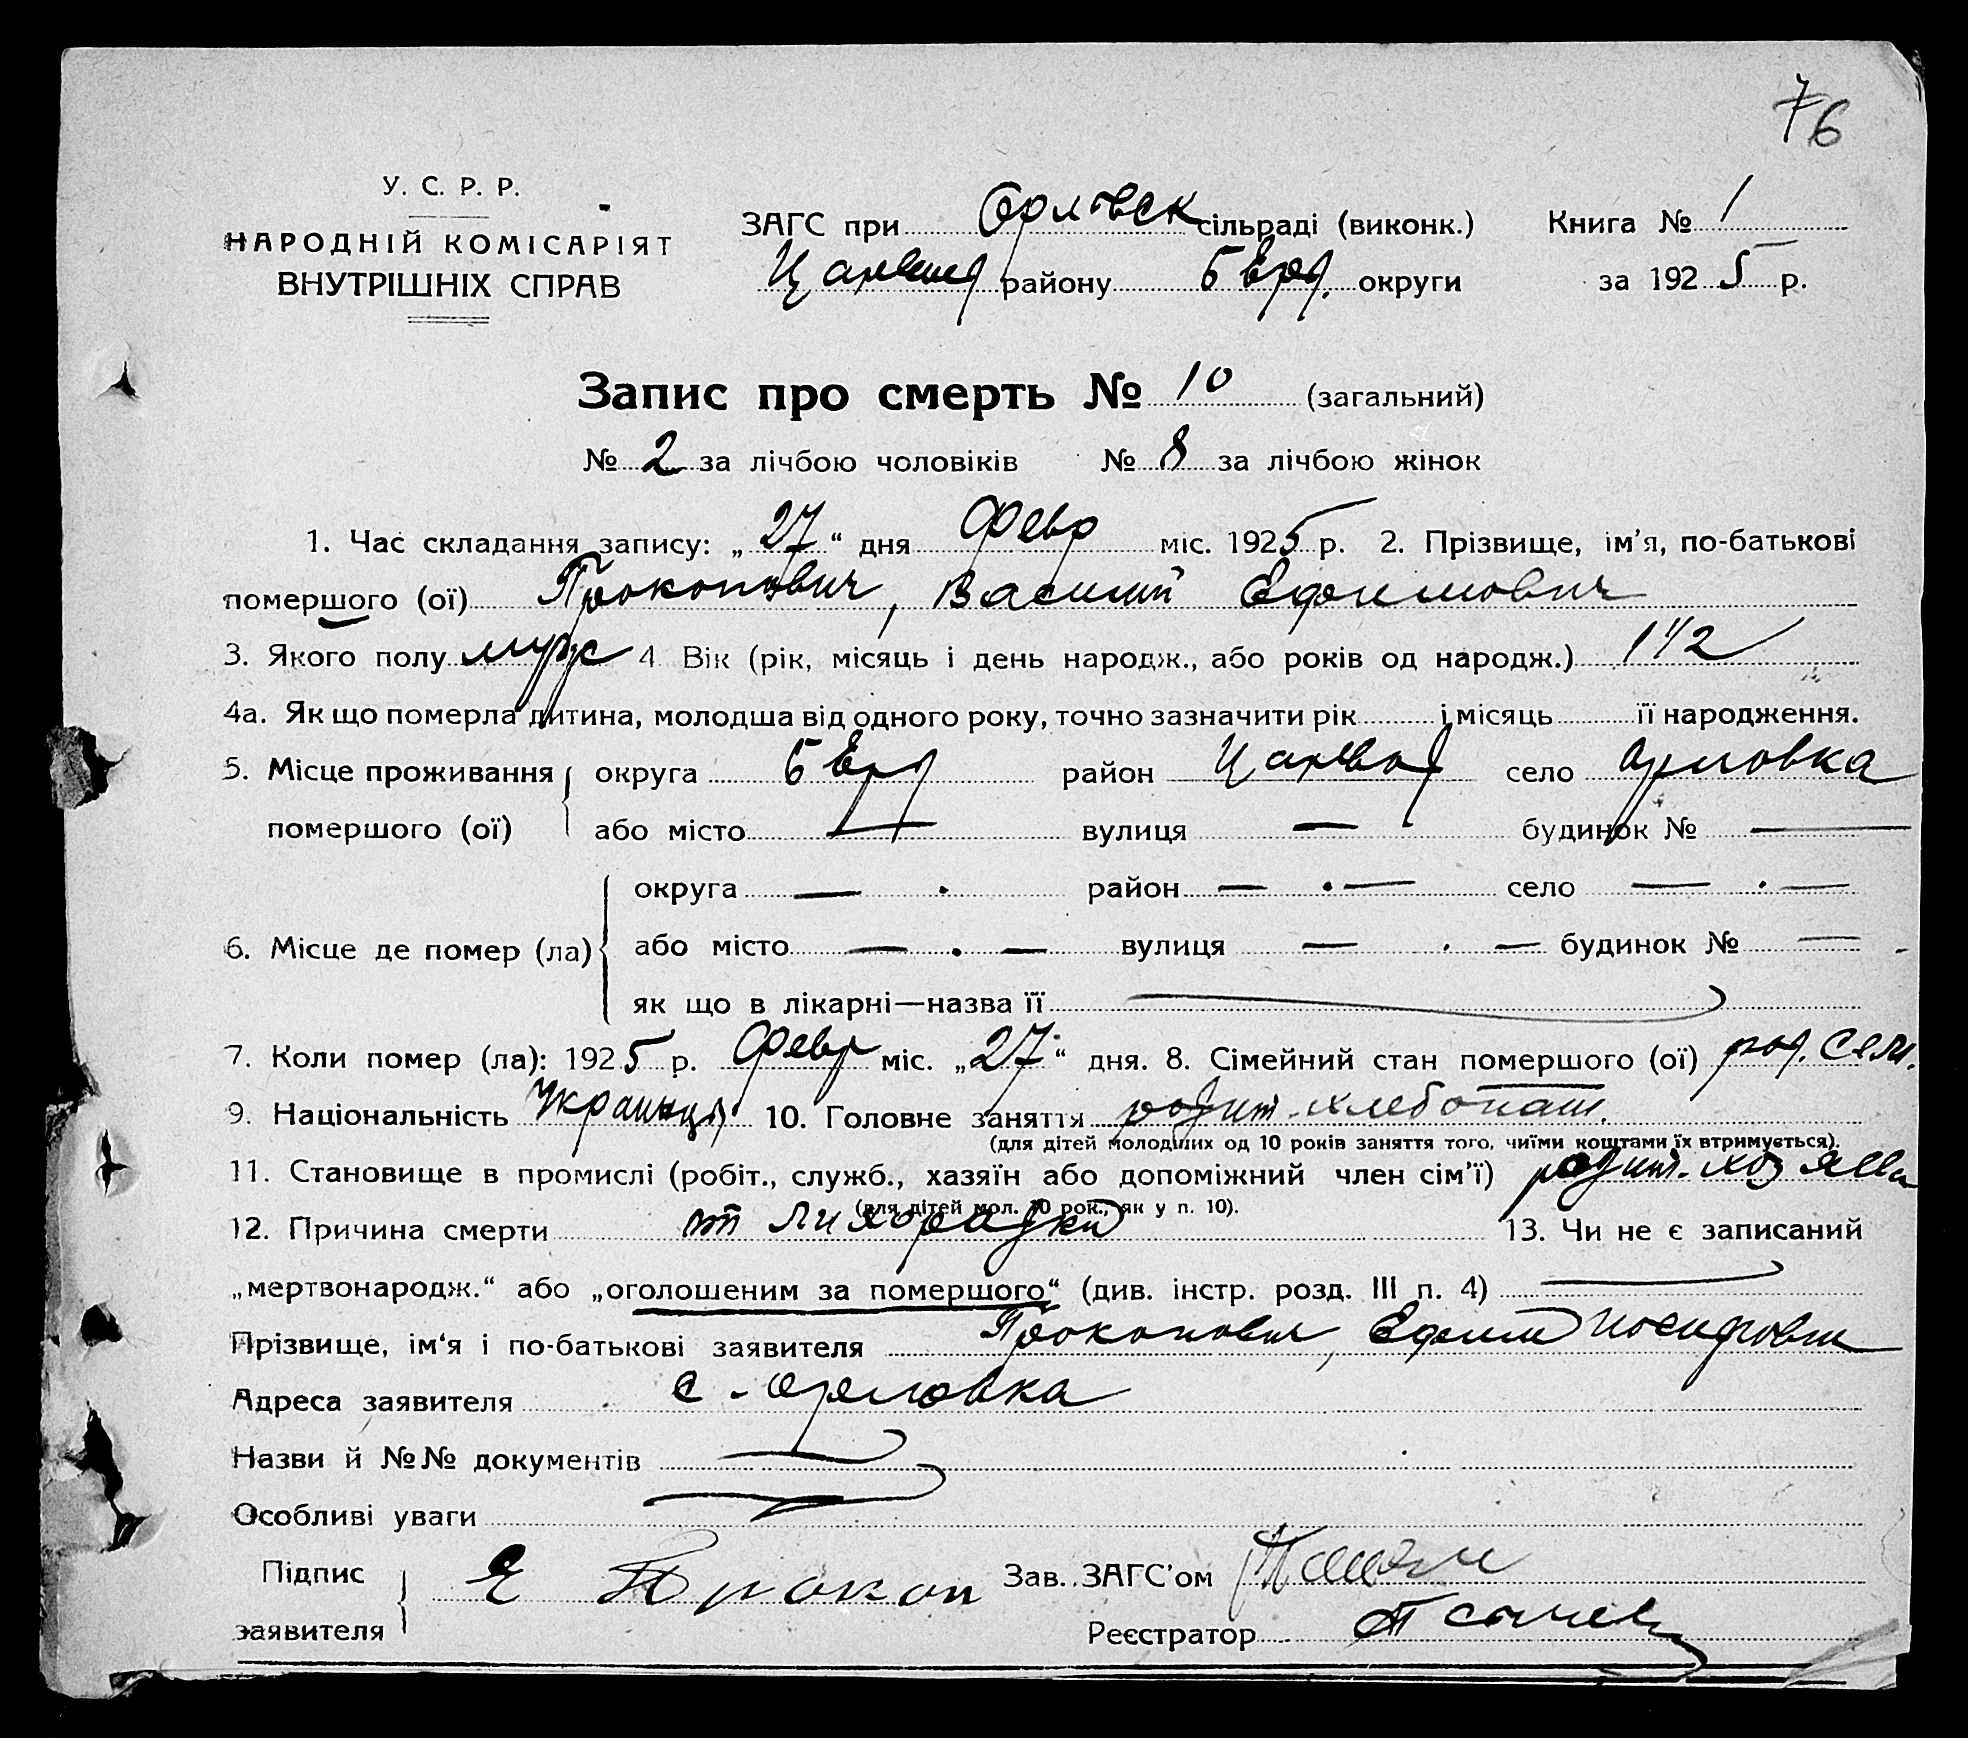 76
У. С. Р. Р.
НАРОДНІЙ КОМІСАРІЯТ
ВНУТРІШНІХ СПРАВ
ЗАГС при Орловск сільраді (виконк.) Книга № 1
району округи за 1925 р.
Запис про смерть № 10 (загальний)
№ 2 за лічбою чоловіків № 8 за лічбою жінок
1. Час складання запису: „27“ дня Февр міс. 1925 р. 2. Прізвище, ім’я, по-батькові
помершого (ої) Прокопович, Василий Ефимович
3. Якого полу муж 4 Вік (рік, місяць і день народж., або років од народж.) 1 1/2
4а. Як що померла дитина, молодша від одного року, точно зазначити рік і місяць її народження.
5. Місце проживання округа район село Орловка
помершого (ої) або місто — вулиця — будинок № —
округа — . район — . — село — . —
6. Місце де помер (ла) або місто — . — вулиця — . — будинок № —
як що в лікарні—назва її
7. Коли помер (ла): 1925 р. Февр міс. „27“ дня. 8. Сімейний стан помершого (ої)
9. Національність 10. Головне заняття родит. хлебопаш.
(для дітей молодших од 10 років заняття того, чиїми коштами їх втримується).
11. Становище в промислі (робіт., служб., хазяїн або допоміжний член сім’ї) родит. хозяева
(для дітей мол. 10 рок., як у п. 10).
12. Причина смерти от лихорадки 13. Чи не є записаний
„мертвонародж.“ або „оголошеним за помершого“ (див. інстр. розд. III п. 4)
Прізвище, ім‘я і по-батькові заявителя Прокопович, Ефим Иосифович
Адреса заявителя с - Орловка
Назви й №№ документів
Особливі уваги
Підпис Е Прокоп Зав. ЗАГС’ом
заявителя Реєстратор